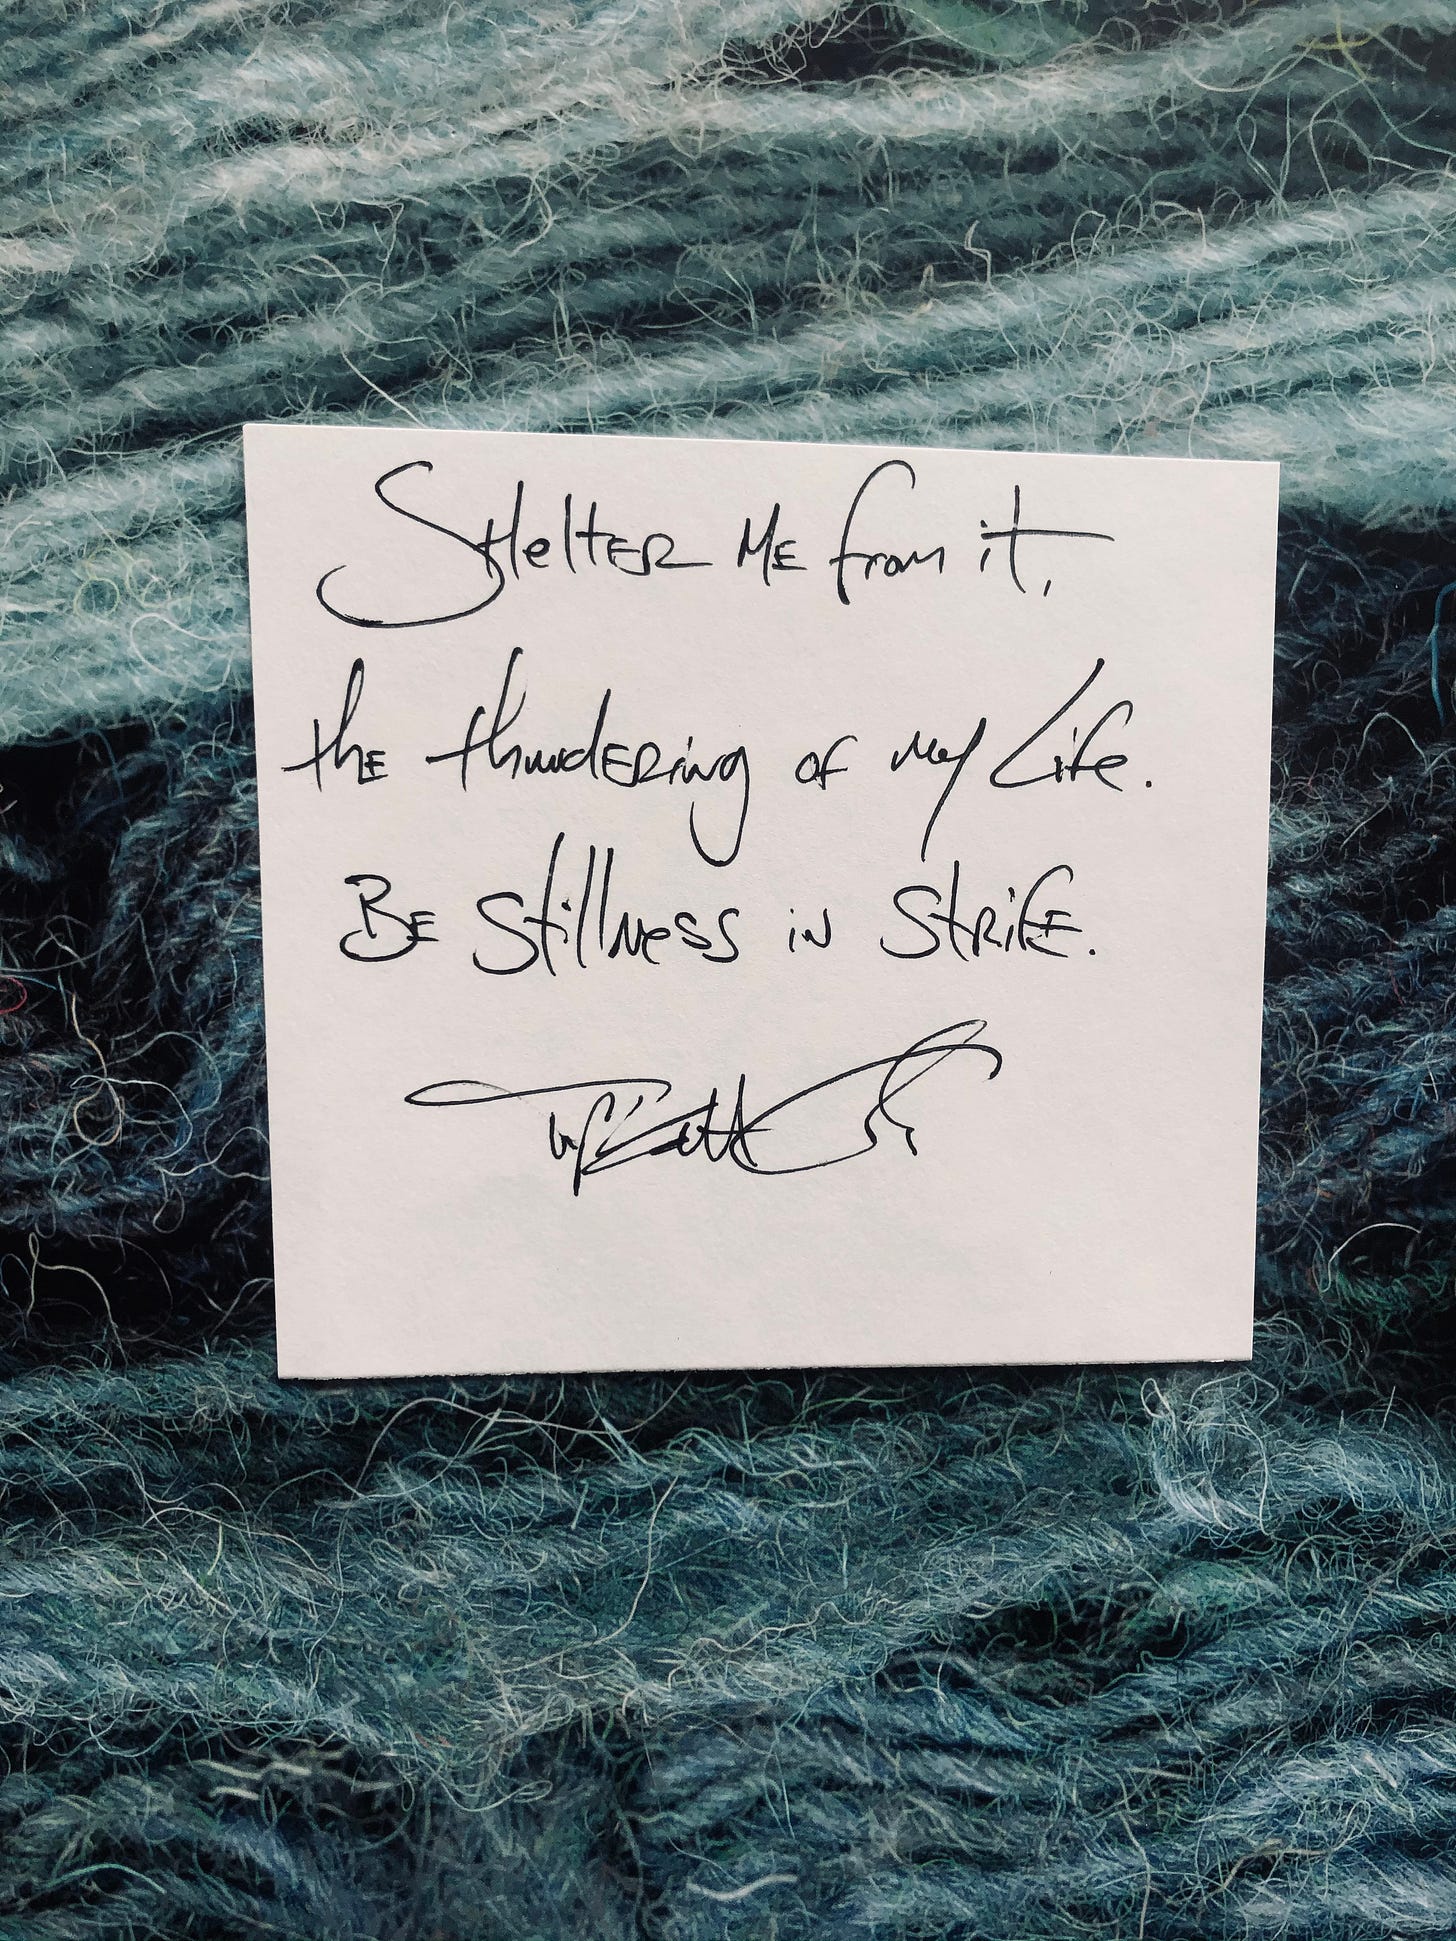 Shelter me from it,
the thundering of my life.
Be stillness in strife.